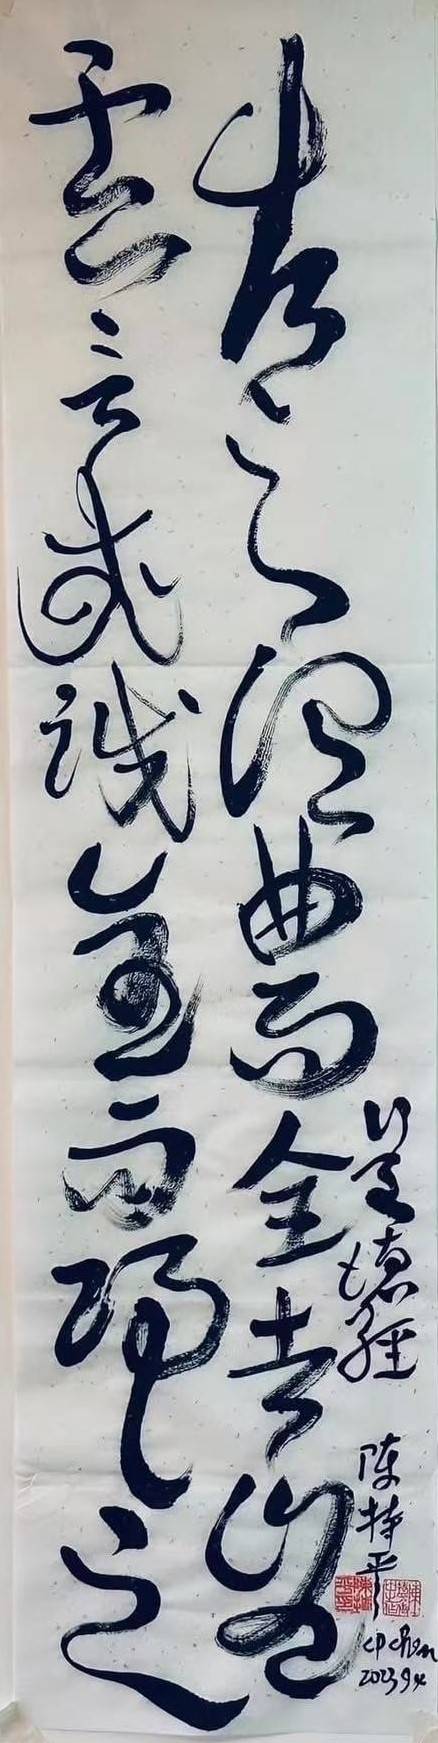 古之谓曲而全者岂
虚言哉诚全而归之
道德经
陈持平
cp chen
2023 9